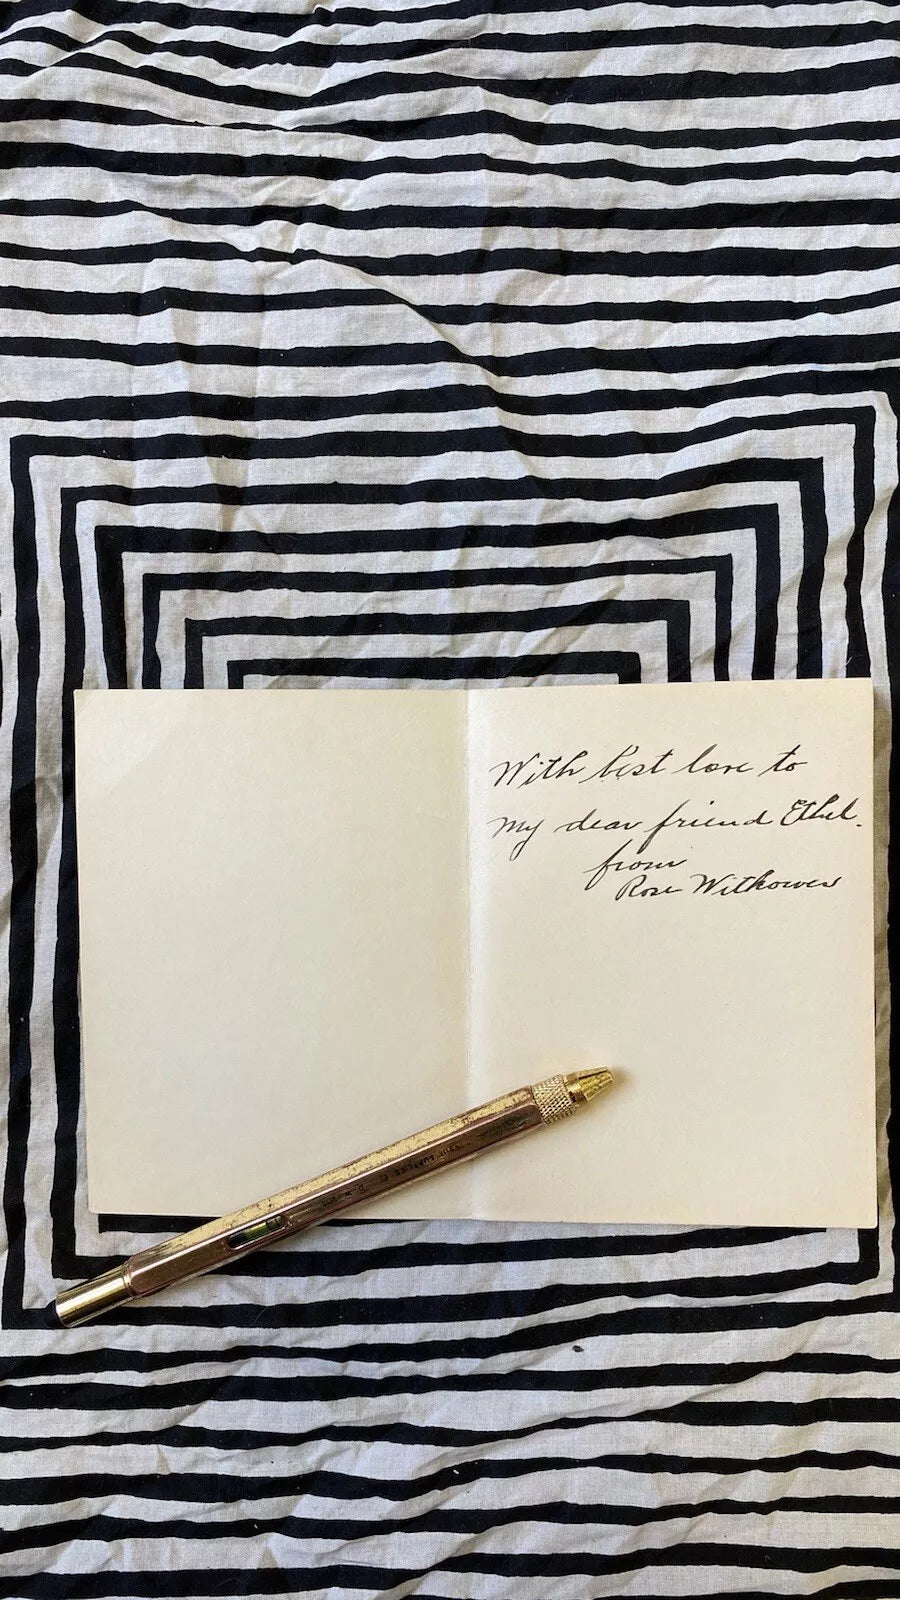 With best love to
my dear friend Ethel.
from
Rose